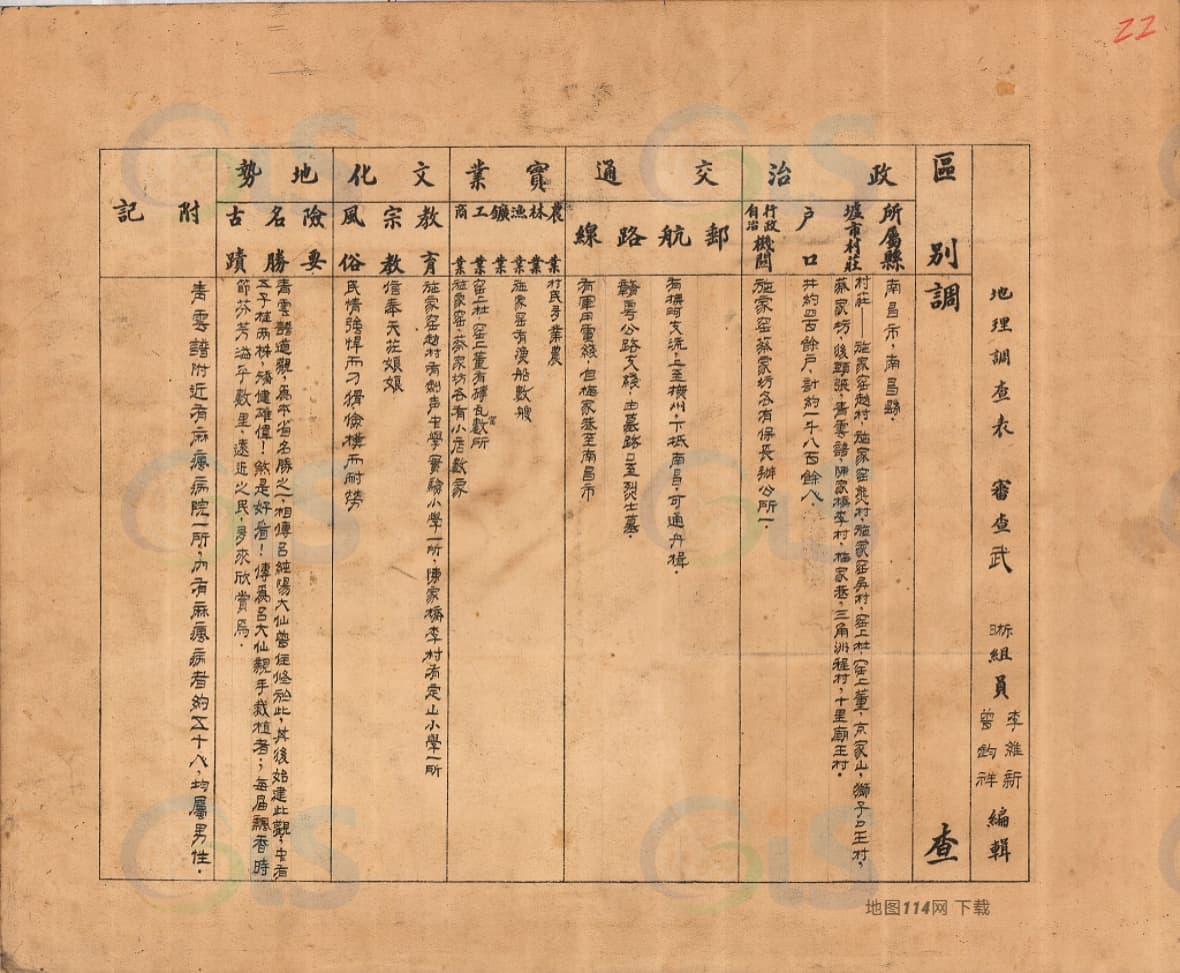 22
地理調查表 審查武
浙組員 李維新 曾鈞祥 編輯
區別調查
政治
所屬縣
南昌市，南昌縣．
墟市村莊
村莊——施家窑趙村，施家窑熊村，施家窑吳村，窑上杜，窑上董，京家山，獅子口王村，
蔡家坊，後頭張，青雲譜，陳家橋李村，梅家巷，三角洲程村，十里廟王村．
户口
共約四百餘户，計約一千八百餘人．
行政自治機關
施家窑蔡家坊各有保長辦公所一．
交通
郵航路線
有撫河支流，上至撫州，下抵南昌，可通舟楫．
贛粵公路支綫，主墓路口至烈士墓．
有軍用電綫，但梅家巷至南昌市
實業
農業
村民多業農
林業
漁業
施家窑有漁船數艘
鑛業
工業
窑上杜，窑上董有磚瓦窑數所
商業
施家窑，蔡家坊各有小店數家
文化
教育
施家窑趙村有劍聲中學實驗小學一所，陳家橋李村有定山小學一所
宗教
信奉天花娘娘
風俗
民情強悍而刁猾儉樸而耐勞
地勢
險要
名勝
古蹟
青雲譜道觀，爲本省名勝之一，相傳呂純陽大仙曾住修於此，其後始建此觀，中有
五子桂兩株，矯健雄偉！煞是好看！傳爲呂大仙親手栽植者；每屆飄香時
節芬芳溢乎數里，遠近之民，多來欣賞焉．
附記
青雲譜附近有麻瘋病院一所，內有麻瘋病者約五十人，均屬男性．
地图114网 下载